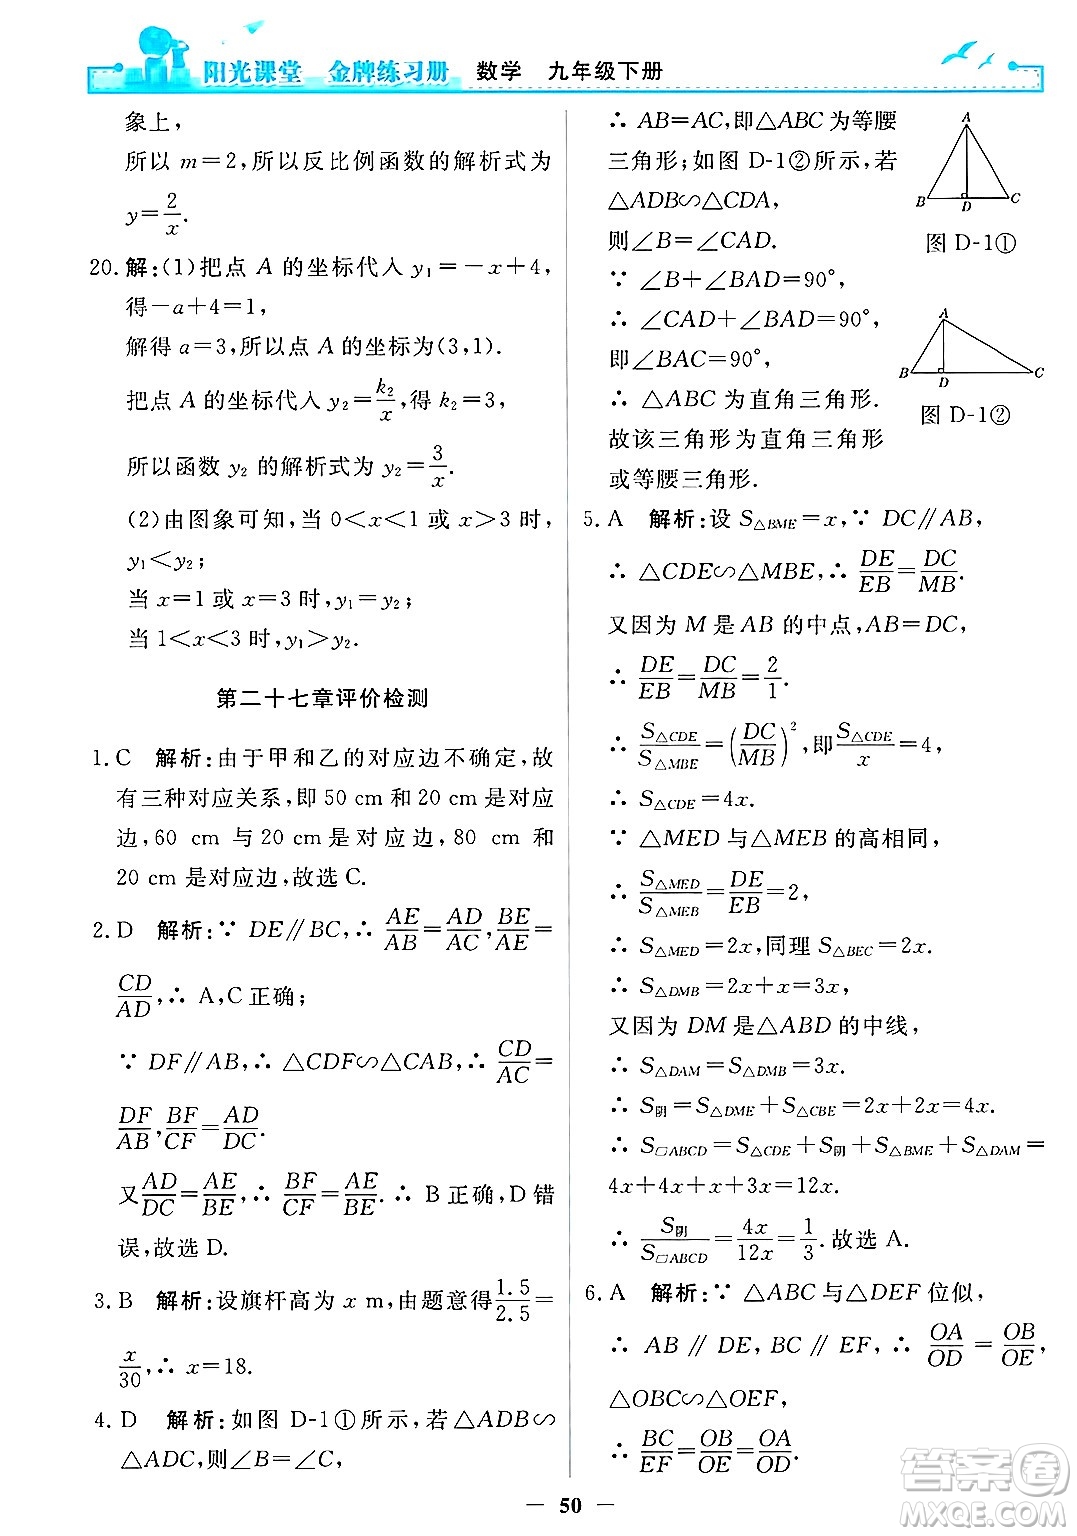 阳光课堂 金牌练习册 数学 九年级下册
象上，
所以 m=2，所以反比例函数的解析式为
y=2/x.
20. 解：(1)把点 A 的坐标代入 y₁=-x+4，
得-a+4=1，
解得 a=3，所以点 A 的坐标为(3,1).
把点 A 的坐标代入 y₂=k₂/x，得 k₂=3，
所以函数 y₂ 的解析式为 y₂=3/x.
(2)由图象可知，当 0<x<1 或 x>3 时，
y₁<y₂；
当 x=1 或 x=3 时，y₁=y₂；
当 1<x<3 时，y₁>y₂.
第二十七章评价检测
1. C 解析：由于甲和乙的对应边不确定，故
有三种对应关系，即 50 cm 和 20 cm 是对应
边，60 cm 与 20 cm 是对应边，80 cm 和
20 cm 是对应边，故选 C.
2. D 解析：∵ DE∥BC，∴ AE/AB=AD/AC，BE/AE=
CD/AD，∴ A，C 正确；
∵ DF∥AB，∴ △CDF∽△CAB，∴ CD/AC=
DF/AB，BF/CF=AD/DC.
又AD/DC=AE/BE，∴ BF/CF=AE/BE.∴ B 正确，D 错
误，故选 D.
3. B 解析：设旗杆高为 x m，由题意得1.5/2.5=
x/30，∴ x=18.
4. D 解析：如图 D-1①所示，若△ADB∽
△ADC，则∠B=∠C，
∴ AB=AC，即△ABC 为等腰
三角形；如图 D-1②所示，若
△ADB∽△CDA，
则∠B=∠CAD.
∵ ∠B+∠BAD=90°，
∴ ∠CAD+∠BAD=90°，
即∠BAC=90°，
∴ △ABC 为直角三角形.
故该三角形为直角三角形
或等腰三角形.
A
B D C
图 D-1①
A
B D C
图 D-1②
5. A 解析：设 S△BME=x，∵ DC∥AB，
∴ △CDE∽△MBE，∴ DE/EB=DC/MB.
又因为 M 是 AB 的中点，AB=DC，
∴ DE/EB=DC/MB=2/1.
∴ S△CDE/S△MBE=(DC/MB)²，即S△CDE/x=4，
∴ S△CDE=4x.
∵ △MED 与△MEB 的高相同，
∴ S△MED/S△MEB=DE/EB=2，
∴ S△MED=2x，同理 S△BEC=2x.
∴ S△DMB=2x+x=3x，
又因为 DM 是△ABD 的中线，
∴ S△DAM=S△DMB=3x.
∴ S阴=S△DME+S△CBE=2x+2x=4x.
∴ S□ABCD=S△CDE+S阴+S△BME+S△DAM=
4x+4x+x+3x=12x.
∴ S阴/S□ABCD=4x/12x=1/3.故选 A.
6. A 解析：∵ △ABC 与△DEF 位似，
∴ AB∥DE，BC∥EF，∴ OA/OD=OB/OE，
△OBC∽△OEF，
∴ BC/EF=OB/OE=OA/OD.
— 50 —
答案圈
MXQE.COM